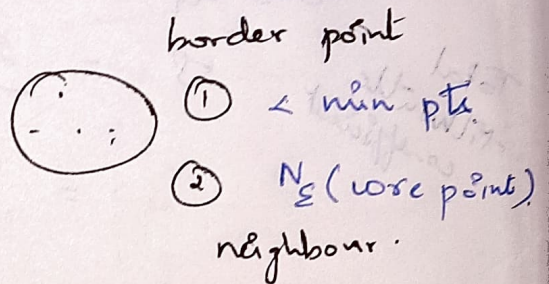 border point
① < min pts.
② Nε (core point)
neighbour.